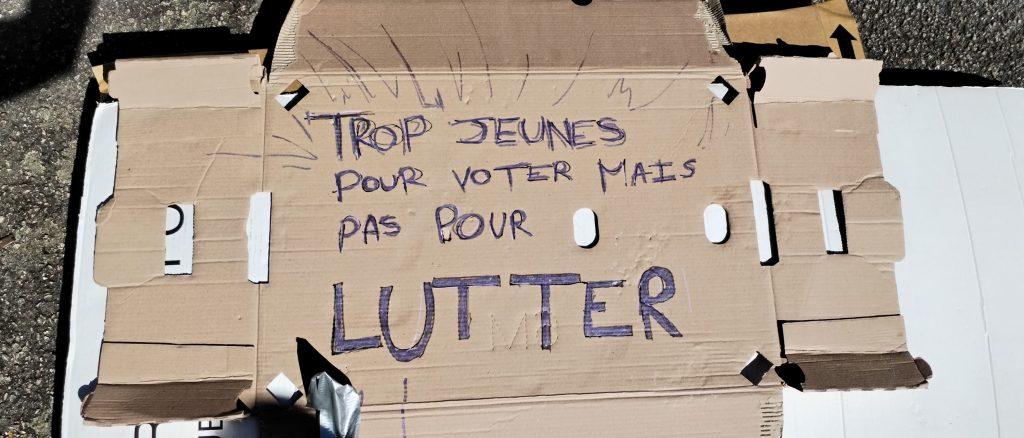 TROP JEUNES
POUR VOTER MAIS
PAS POUR
LUTTER